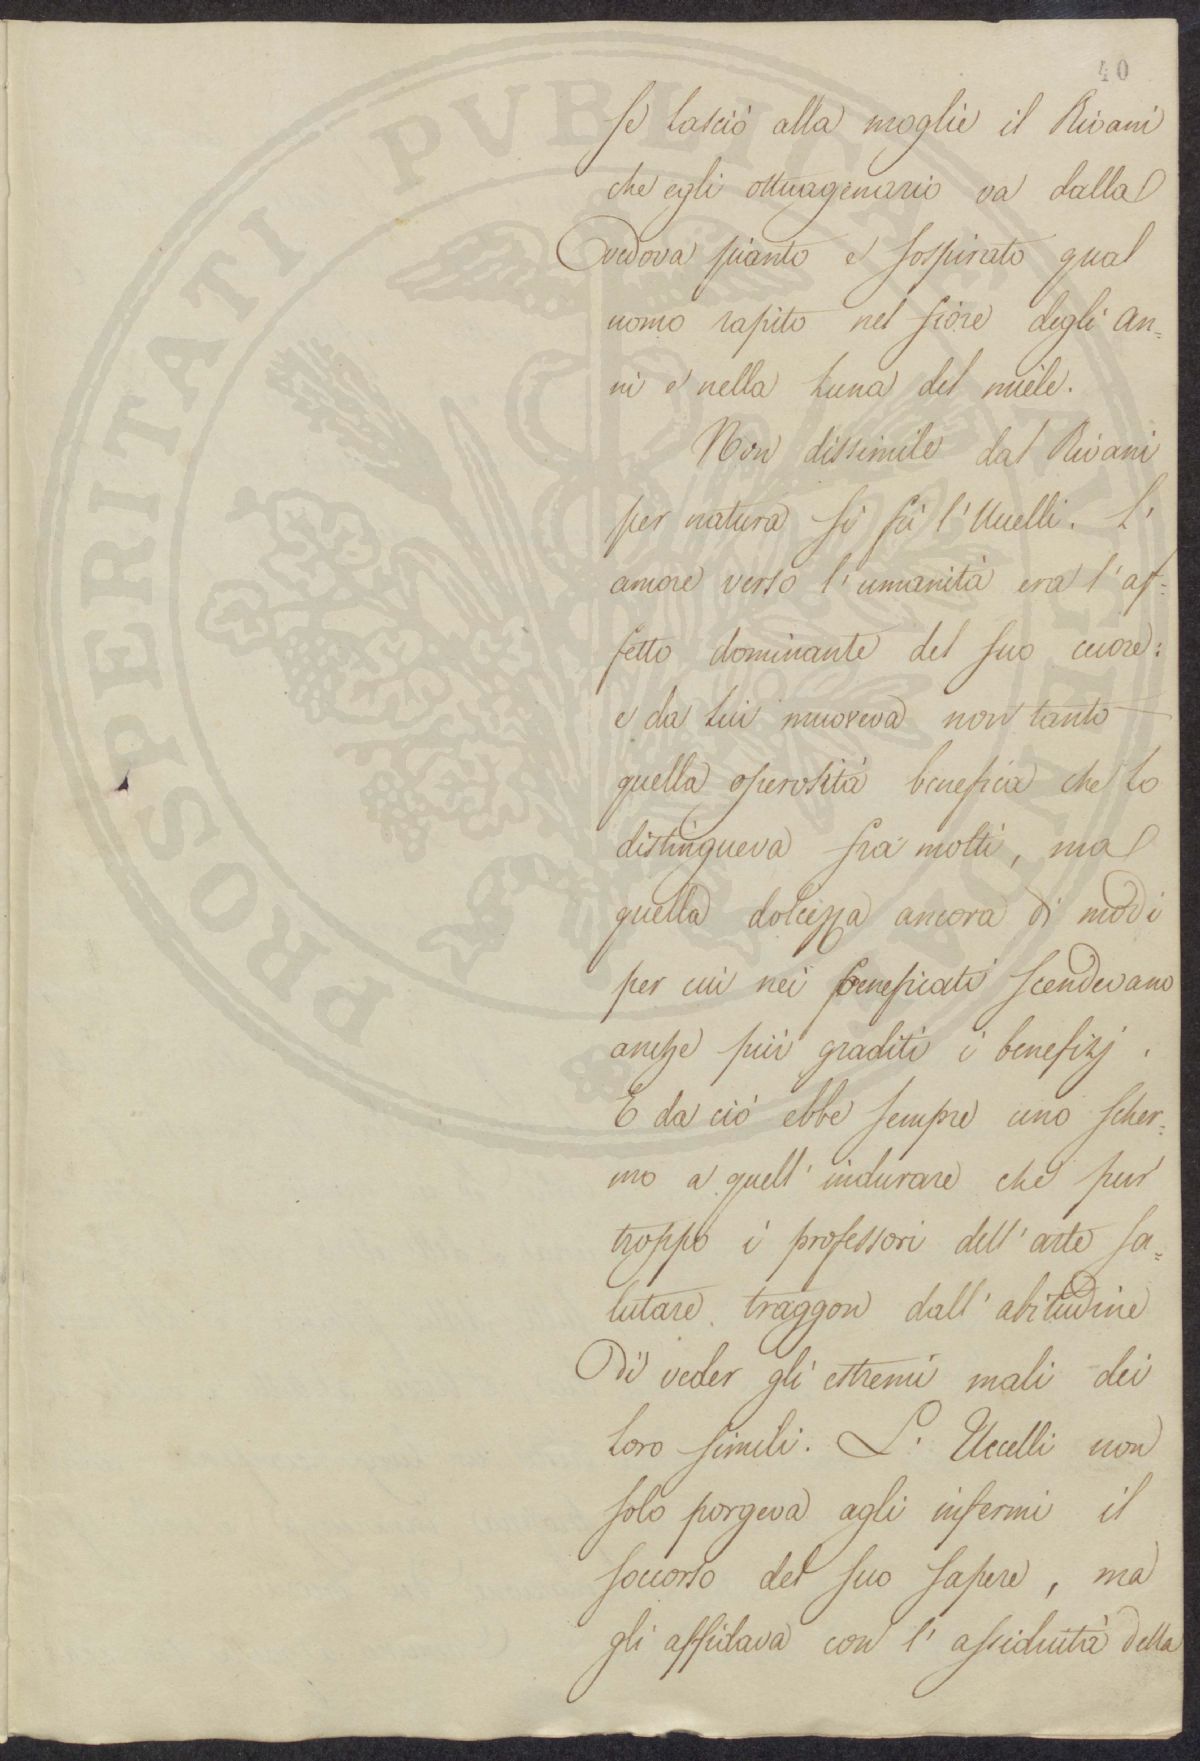 40
se lasciò alla moglie il Rivani
che egli ottuagenario va dalla
vedova pianto e sospirato qual
uomo rapito nel fiore degli an=
ni e nella luna del miele.
Non dissimile dal Rivani
per natura si fù l'Uccelli. L'
amore verso l'umanità era l'af=
fetto dominante del suo cuore:
e da lui muoveva non tanto
quella operosità benefica che lo
distingueva fra molti, ma
quella dolcezza ancora di modi
per cui nei beneficati scendevano
anche più graditi i benefizj.
E da ciò ebbe sempre uno scher=
mo a quell'indurare che pur
troppo i professori dell'arte sa=
lutare traggon dall'abitudine
di veder gli estremi mali dei
loro simili. L'Uccelli non
solo porgeva agli infermi il
soccorso del suo sapere, ma
gli affidava con l'assiduità della
PROSPERITATI PUBLICAE AUGENDAE